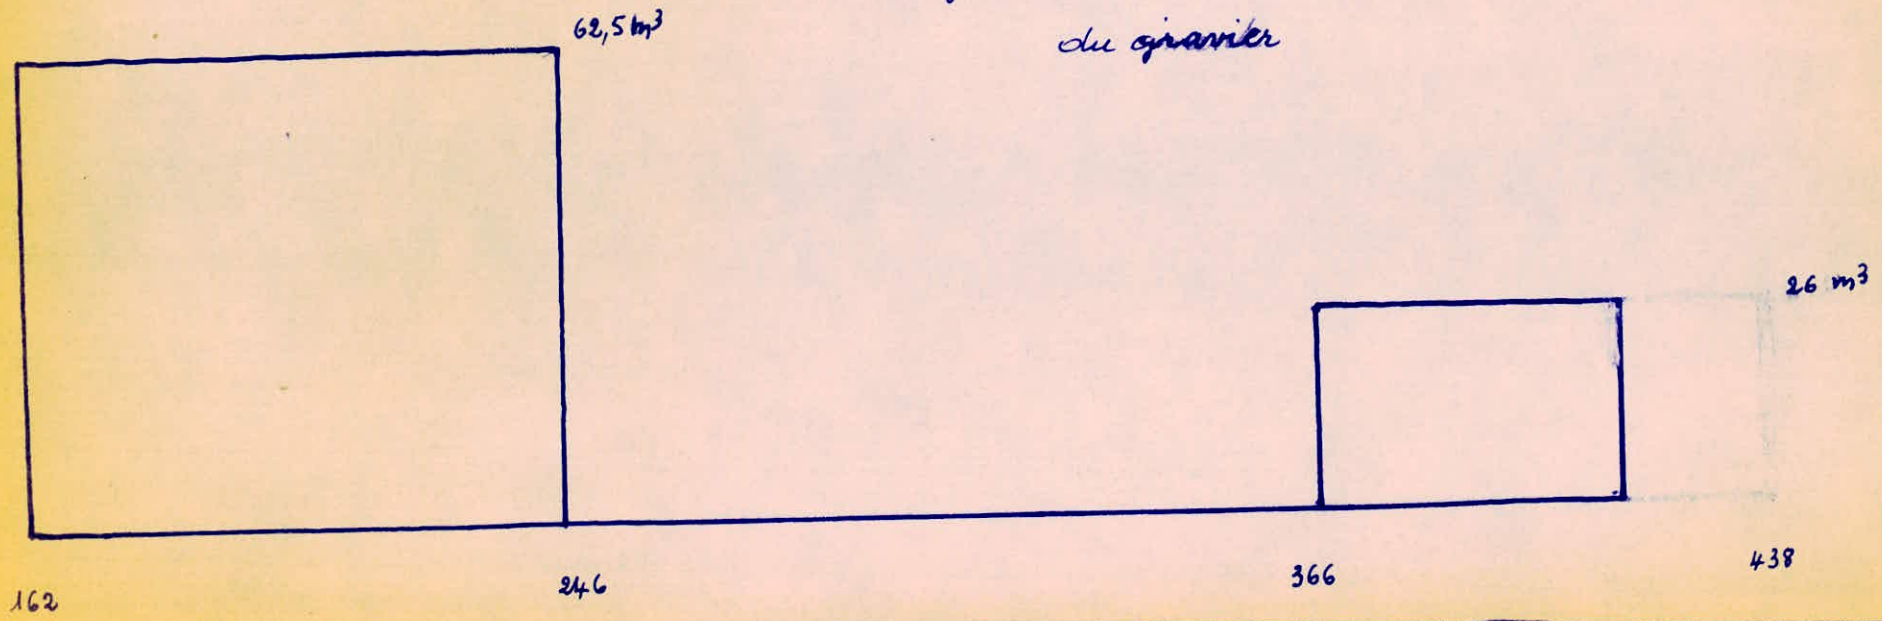 62,5 m³
du gravier
26 m³
162
246
366
438